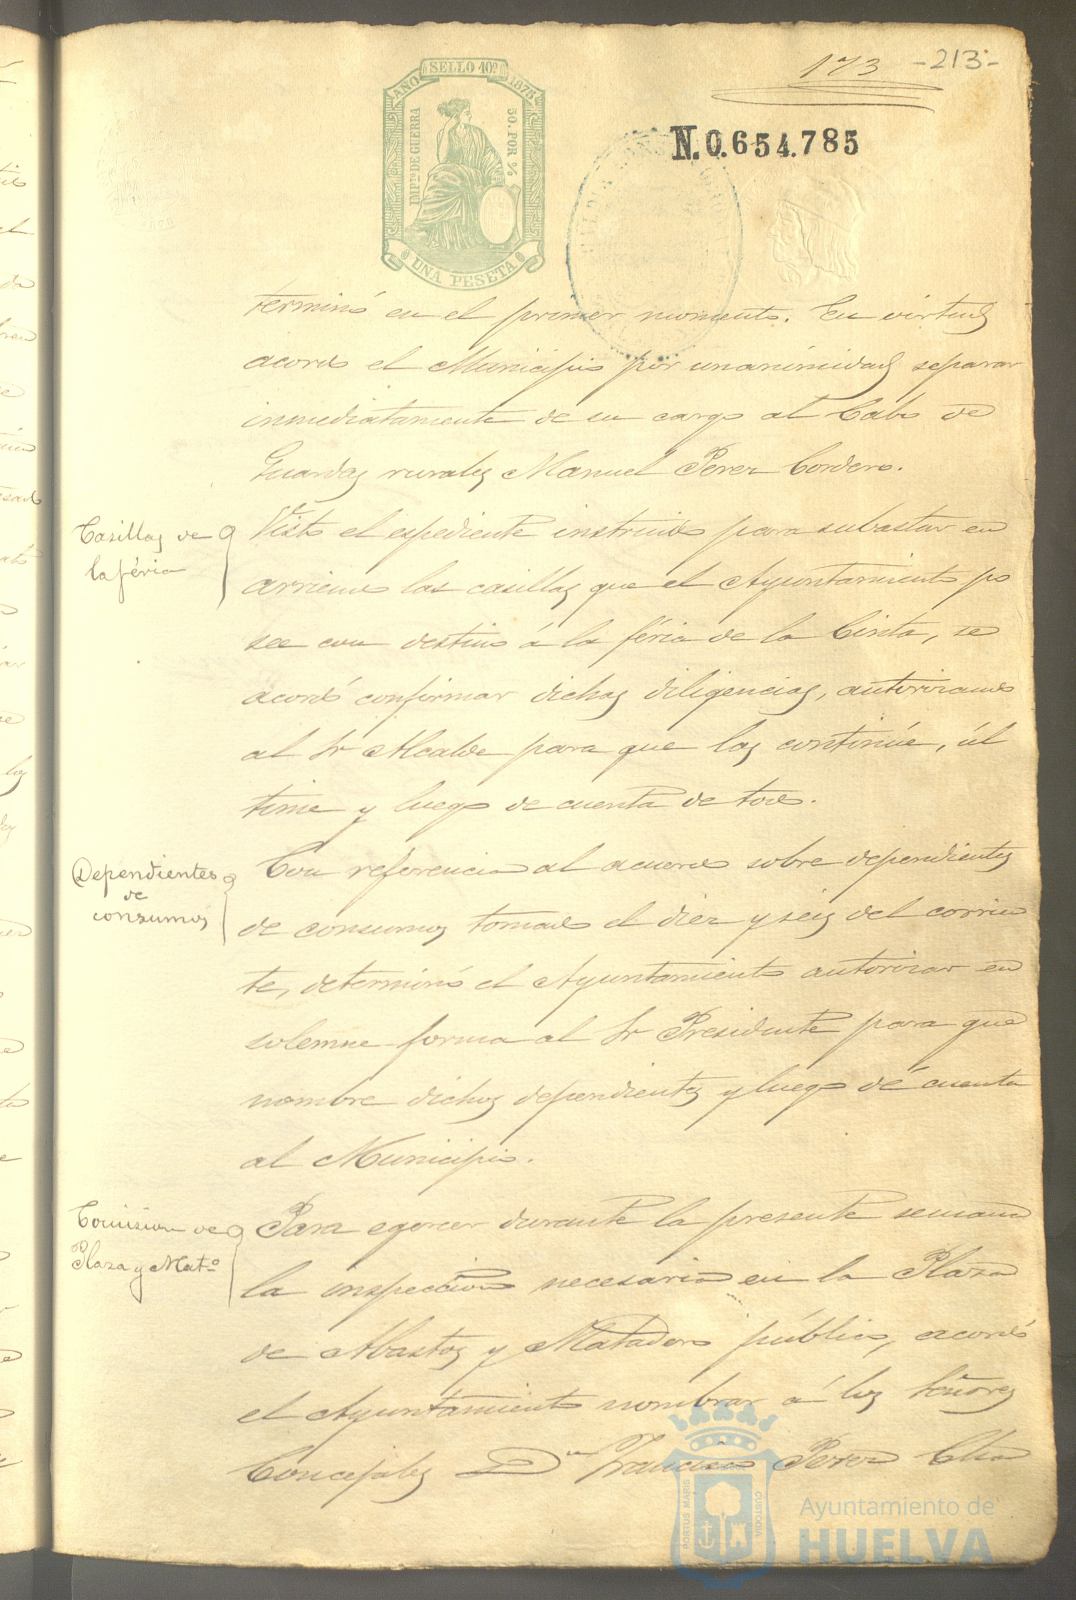 173 -213-
AÑO SELLO 10º 1878
IMPTO DE GUERRA 50 POR %
UNA PESETA
N.0.654.785
terminó en el primer momento. En virtud
acordó el Municipio por unanimidad separar
inmediatamente de su cargo al Cabo de
Guardas rurales Manuel Perez Cordero.
Casillas de
la féria
Visto el espediente instruido para subastar en
arriendo las casillas que el Ayuntamiento po
see con destino á la féria de la Cinta, se
acordó confirmar dichas diligencias, autorizando
al Sr Alcalde para que las continúe, úl
time y luego de cuenta de todo.
Dependientes
de
consumos
Con referencia al acuerdo sobre dependientes
de consumos tomado el diez y seis del corrien
te, determinó el Ayuntamiento autorizar en
solemne forma al Sr Presidente para que
nombre dichos dependientes y luego dé cuenta
al Municipio.
Comision de
Plaza y Matº
Para egercer durante la presente semana
la inspeccion necesaria en la Plaza
de Abastos y Matadero público, acordó
el Ayuntamiento nombrar á los Señores
Concejales Dn Francisco Perez
PORTUS MARIS CUSTODIA
Ayuntamiento de
HUELVA